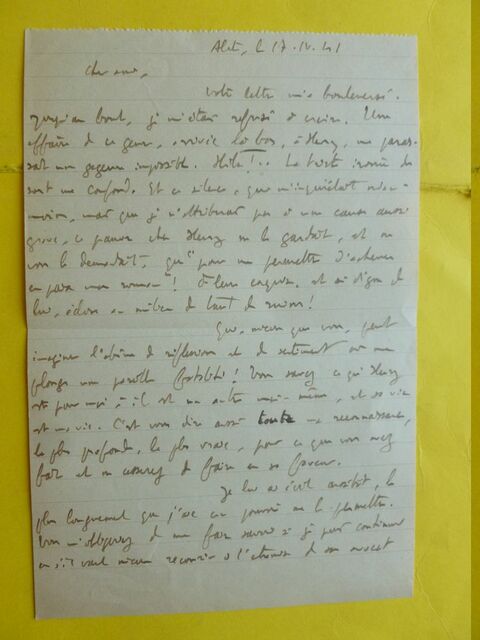 Alet, le 17.IV.41
Cher ami,
Votre lettre m'a bouleversé.
Jusqu'au bout, je m'étais refusé à croire. Une
affaire de ce genre, arrivée là-bas, à Henry, me parais-
sait une gageure impossible. Hélas!.. La triste ironie du
sort me confond. Et ce silence, qui m'inquiétait
mais que je n'attribuais pas à une cause aussi
grave, ce pauvre cher Henry ne le gardait, et ne
vous le demandait, que pour me permettre d'achever
en paix mon roman! Ô leur exquise, et si digne de
lui, éclose au milieu de tant de ruines!
Qui, mieux que vous, peut
imaginer l'abîme de réflexions et de sentiments où me
plonge une pareille fatalité! Vous savez ce qu'Henry
est pour moi; il est un autre moi-même, et sa vie
est ma vie. C'est vous dire aussi toute ma reconnaissance,
la plus profonde, la plus vraie, pour ce que vous avez
fait et ne cesserez de faire en sa faveur.
Je lui ai écrit aussitôt, le
plus longuement que j'aie cru pouvoir me le permettre.
Vous m'obligerez de me faire savoir si je peux continuer
ou s'il vaut mieux recourir à l'adresse de son avocat